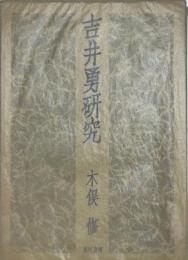 吉井勇研究
木俣 修